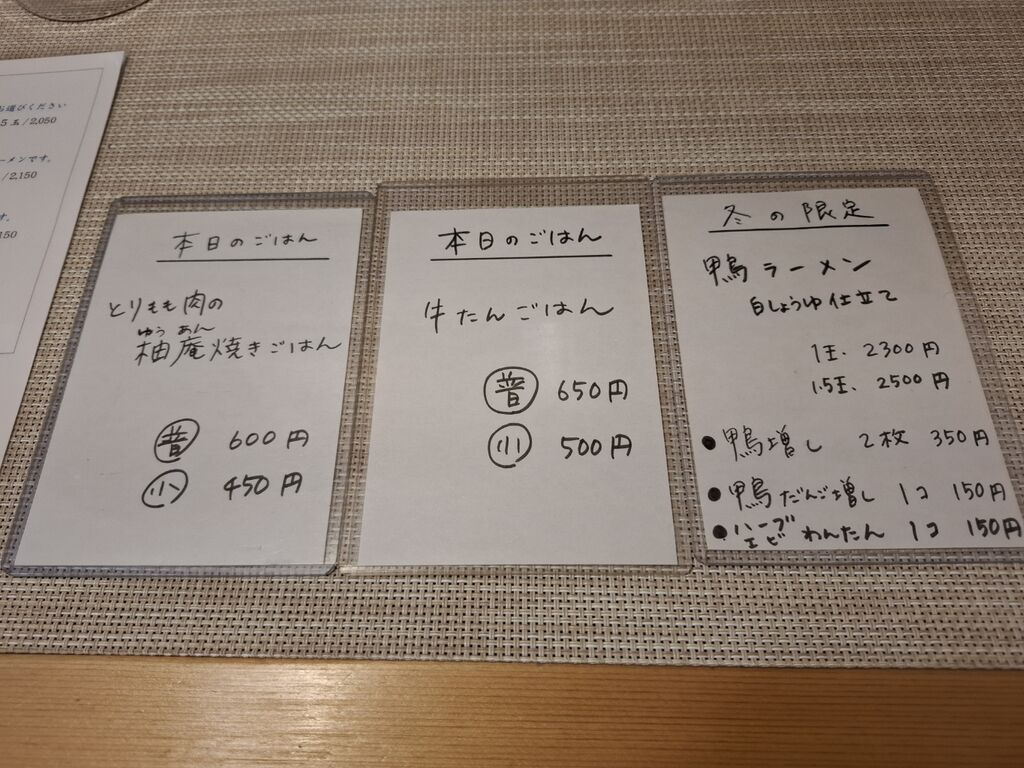 お選びください
5玉/2,050
ーメンです。
/2,150
す。
150
本日のごはん
とりもも肉の
ゆう あん
柚庵焼きごはん
普 600円
小 450円
本日のごはん
牛たんごはん
普 650円
小 500円
冬の限定
鴨ラーメン
白しょうゆ仕立て
1玉、2300円
1.5玉、2500円
●鴨増し 2枚 350円
●鴨だんご増し 1コ 150円
●ハーブ
エビ わんたん 1コ 150円